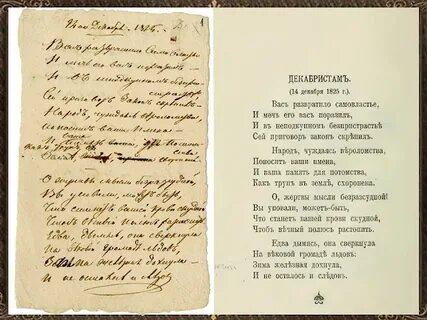 14ое Декабря 1825.
Васъ развратило Самовластье
И мечь его васъ поразилъ —
И въ неподкупномъ безпри-
страстье
Сей приговоръ Законъ скрѣпилъ.
Народъ, чуждаясь вѣроломства,
Поноситъ ваши Имена —
О жертвы мысли безразсудной
Вы уповали, можетъ быть,
Что станетъ вашей крови скудной
Едва, дымясь, она сверкнула
На вѣковой громадѣ льдовъ,
Зима желѣзная дохнула —
И не осталось и слѣдовъ
ДЕКАБРИСТАМЪ.
(14 декабря 1825 г.)
Васъ развратило самовластье,
И мечъ его васъ поразилъ,
И въ неподкупномъ безпристрастьѣ
Сей приговоръ законъ скрѣпилъ.
Народъ, чуждаясь вѣроломства,
Поноситъ ваши имена,
И ваша память для потомства,
Какъ трупъ въ землѣ, схоронена.
О, жертвы мысли безразсудной!
Вы уповали, можетъ-быть,
Что станетъ вашей крови скудной,
Чтобъ вѣчный полюсъ растопить.
Едва дымясь, она сверкнула
На вѣковой громадѣ льдовъ;
Зима желѣзная дохнула,
И не осталось и слѣдовъ.